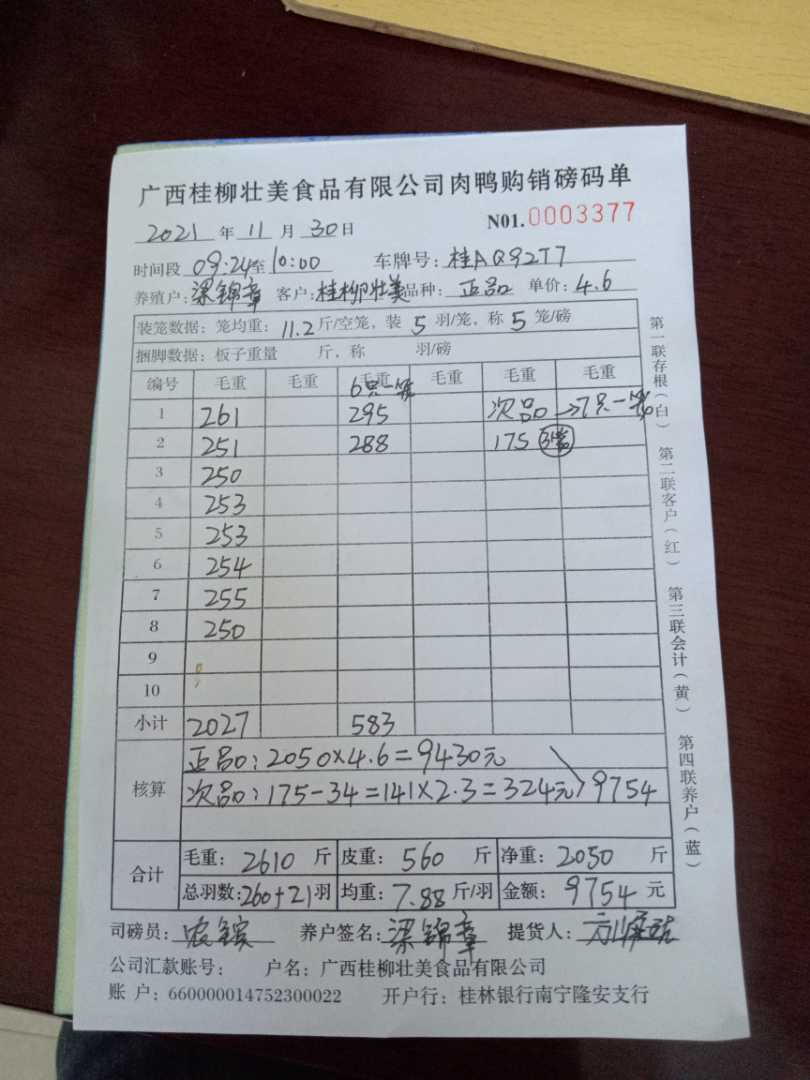 广西桂柳壮美食品有限公司肉鸭购销磅码单
N01.0003377
2021 年 11 月 30 日
时间段 09:24至10:00 车牌号:桂AQ92T7
养殖户:梁锦章 客户:桂柳壮美 品种:正品 单价:4.6
装笼数据:笼均重:11.2斤/空笼,装 5 羽/笼,称 5 笼/磅
捆脚数据:板子重量 斤,称 羽/磅
编号 毛重 毛重 毛重 毛重 毛重 毛重
6只一笼
1 261 295 次品→7只一笼
2 251 288 175 3笼
3 250
4 253
5 253
6 254
7 255
8 250
9
10
小计 2027 583
核算
正品:2050×4.6=9430元
次品:175-34=141×2.3=324元>9754
合计
毛重:2610 斤 皮重:560 斤 净重:2050 斤
总羽数:260+21羽 均重:7.88斤/羽 金额:9754元
司磅员:农镔 养户签名:梁锦章 提货人:
公司汇款账号: 户名:广西桂柳壮美食品有限公司
账 户:660000014752300022 开户行:桂林银行南宁隆安支行
第一联存根(白) 第二联客户(红) 第三联会计(黄) 第四联养户(蓝)